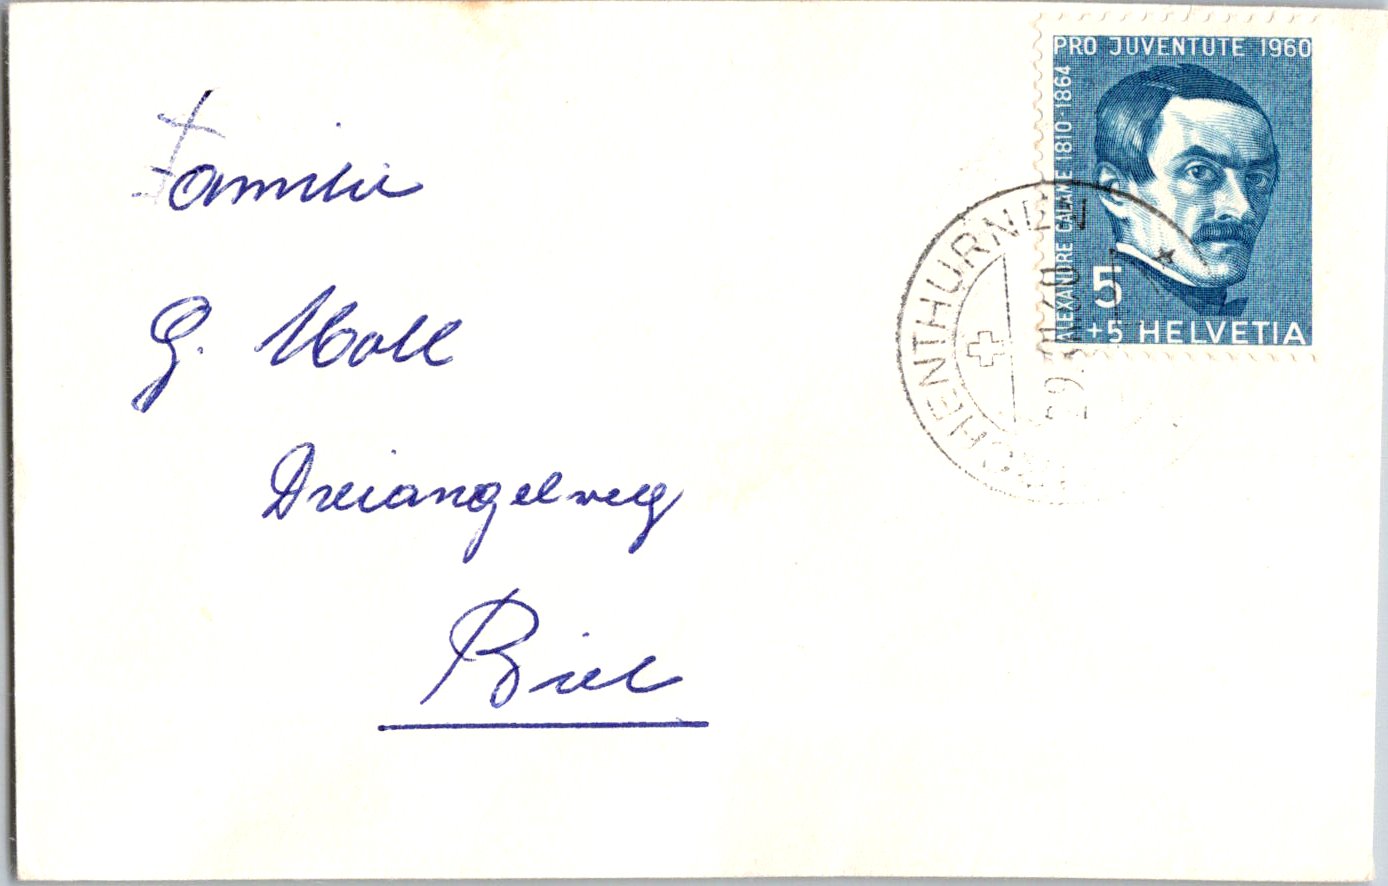 PRO JUVENTUTE 1960
ALEXANDRE CALAME 1810-1864
5
+5 HELVETIA
KIRCHENTHURNEN
Familie
G. Moll
Dreiangelweg
Biel